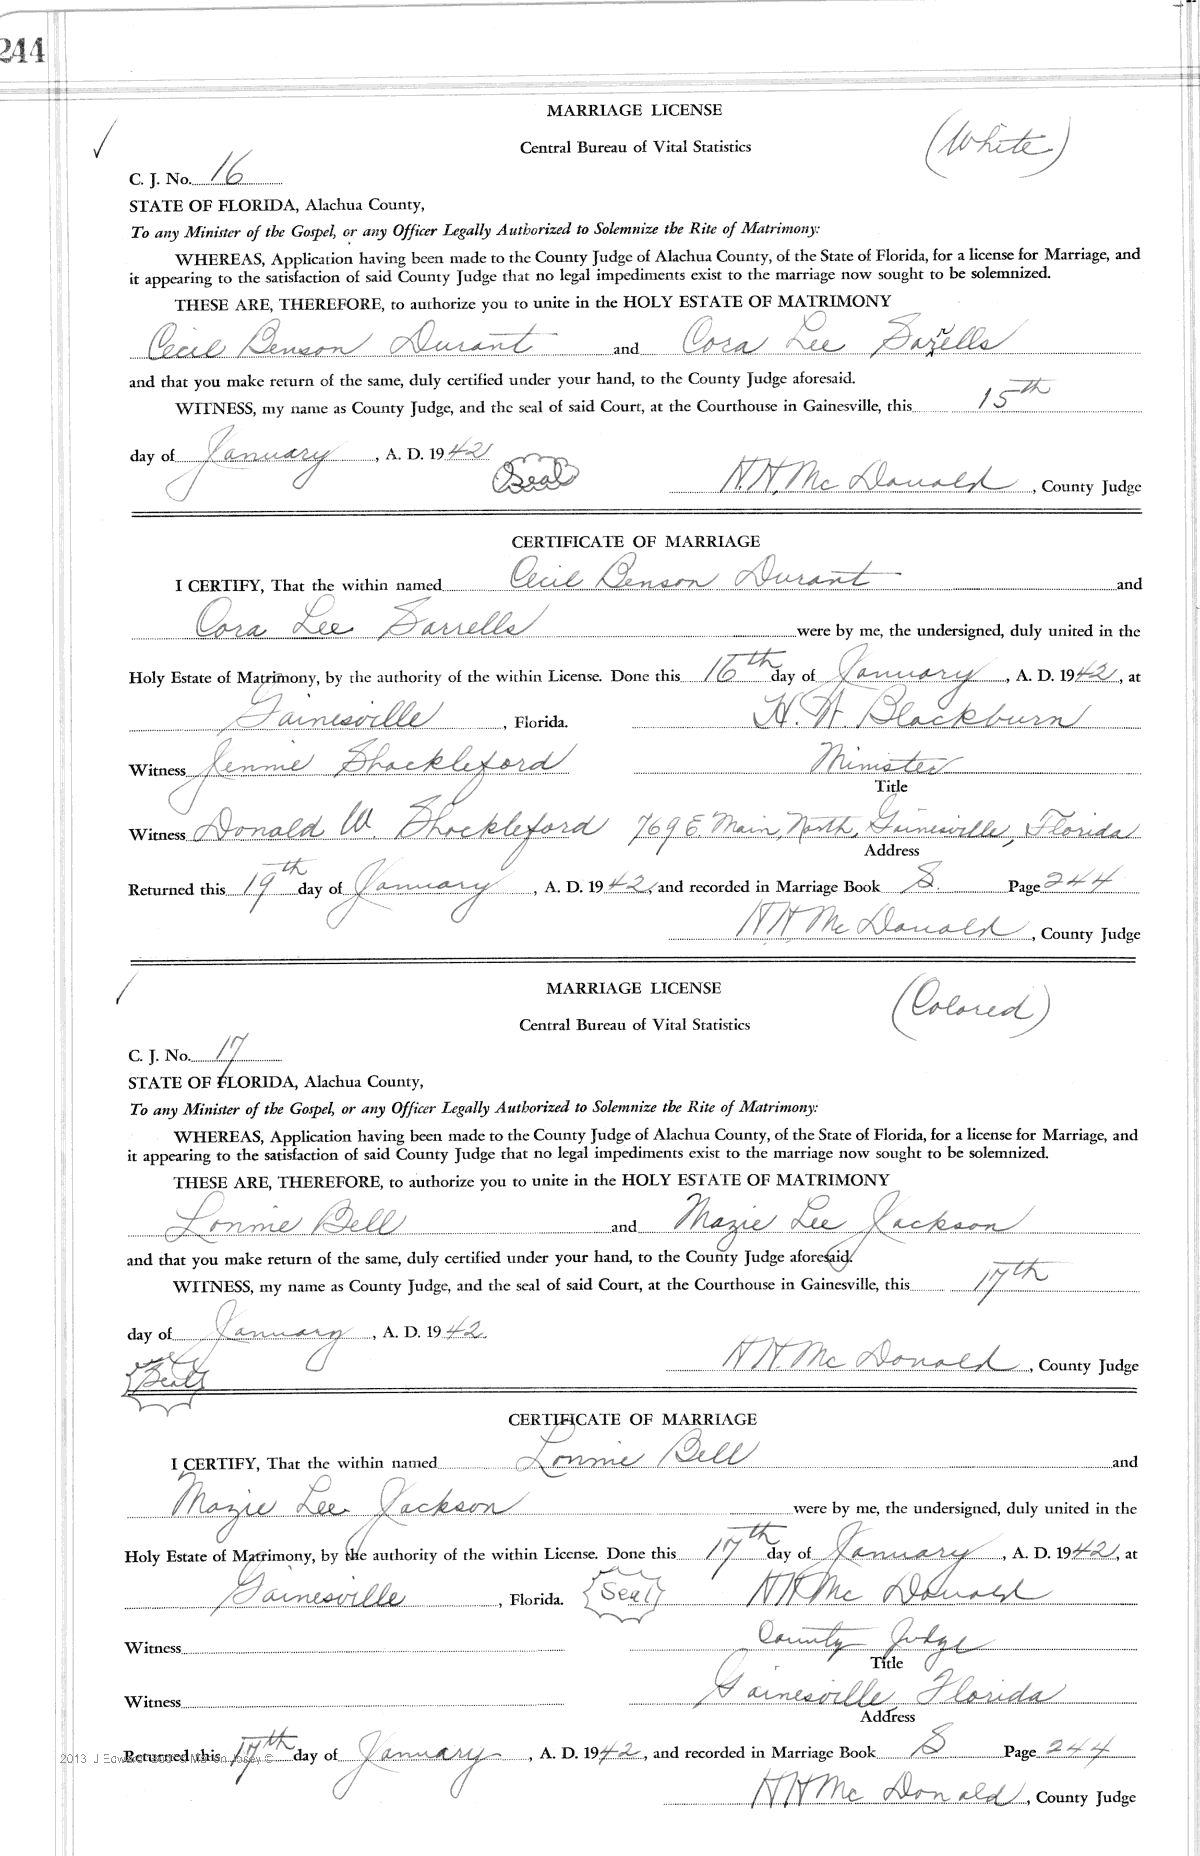 244
MARRIAGE LICENSE
(White)
Central Bureau of Vital Statistics
C. J. No. 16
STATE OF FLORIDA, Alachua County,
To any Minister of the Gospel, or any Officer Legally Authorized to Solemnize the Rite of Matrimony:
WHEREAS, Application having been made to the County Judge of Alachua County, of the State of Florida, for a license for Marriage, and
it appearing to the satisfaction of said County Judge that no legal impediments exist to the marriage now sought to be solemnized.
THESE ARE, THEREFORE, to authorize you to unite in the HOLY ESTATE OF MATRIMONY
Cecil Benson Durant and Cora Lee Sarrells
and that you make return of the same, duly certified under your hand, to the County Judge aforesaid.
WITNESS, my name as County Judge, and the seal of said Court, at the Courthouse in Gainesville, this 15th
day of January, A. D. 1942
Seal H.H. Mc Donald, County Judge
CERTIFICATE OF MARRIAGE
I CERTIFY, That the within named Cecil Benson Durant and
Cora Lee Sarrells were by me, the undersigned, duly united in the
Holy Estate of Matrimony, by the authority of the within License. Done this 16th day of January, A. D. 1942, at
Gainesville, Florida. H. W. Blackburn
Witness Jennie Shackleford Minister
Title
Witness Donald W Shackleford 769 E. Main, North, Gainesville, Florida
Address
Returned this 19th day of January, A. D. 1942, and recorded in Marriage Book S. Page 244
H H Mc Donald, County Judge
MARRIAGE LICENSE
(Colored)
Central Bureau of Vital Statistics
C. J. No. 17
STATE OF FLORIDA, Alachua County,
To any Minister of the Gospel, or any Officer Legally Authorized to Solemnize the Rite of Matrimony:
WHEREAS, Application having been made to the County Judge of Alachua County, of the State of Florida, for a license for Marriage, and
it appearing to the satisfaction of said County Judge that no legal impediments exist to the marriage now sought to be solemnized.
THESE ARE, THEREFORE, to authorize you to unite in the HOLY ESTATE OF MATRIMONY
Lonnie Bell and Mazie Lee Jackson
and that you make return of the same, duly certified under your hand, to the County Judge aforesaid.
WITNESS, my name as County Judge, and the seal of said Court, at the Courthouse in Gainesville, this 17th
day of January, A. D. 1942.
Seal H H. Mc Donald, County Judge
CERTIFICATE OF MARRIAGE
I CERTIFY, That the within named Lonnie Bell and
Mazie Lee Jackson were by me, the undersigned, duly united in the
Holy Estate of Matrimony, by the authority of the within License. Done this 17th day of January, A. D. 1942, at
Gainesville, Florida. Seal H H Mc Donald
Witness County Judge
Title
Witness Gainesville, Florida
Address
Returned this 17th day of January, A. D. 1942, and recorded in Marriage Book S Page 244
2013 J Edward
H H Mc Donald, County Judge